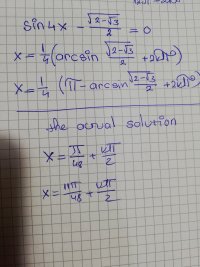 sin4x - √(2-√3)/2 = 0
x = 1/4 (arcsin √(2-√3)/2 + 2kπ)
x = 1/4 (π - arcsin √(2-√3)/2 + 2kπ)
the acrual solution
x = π/48 + kπ/2
x = 11π/48 + kπ/2